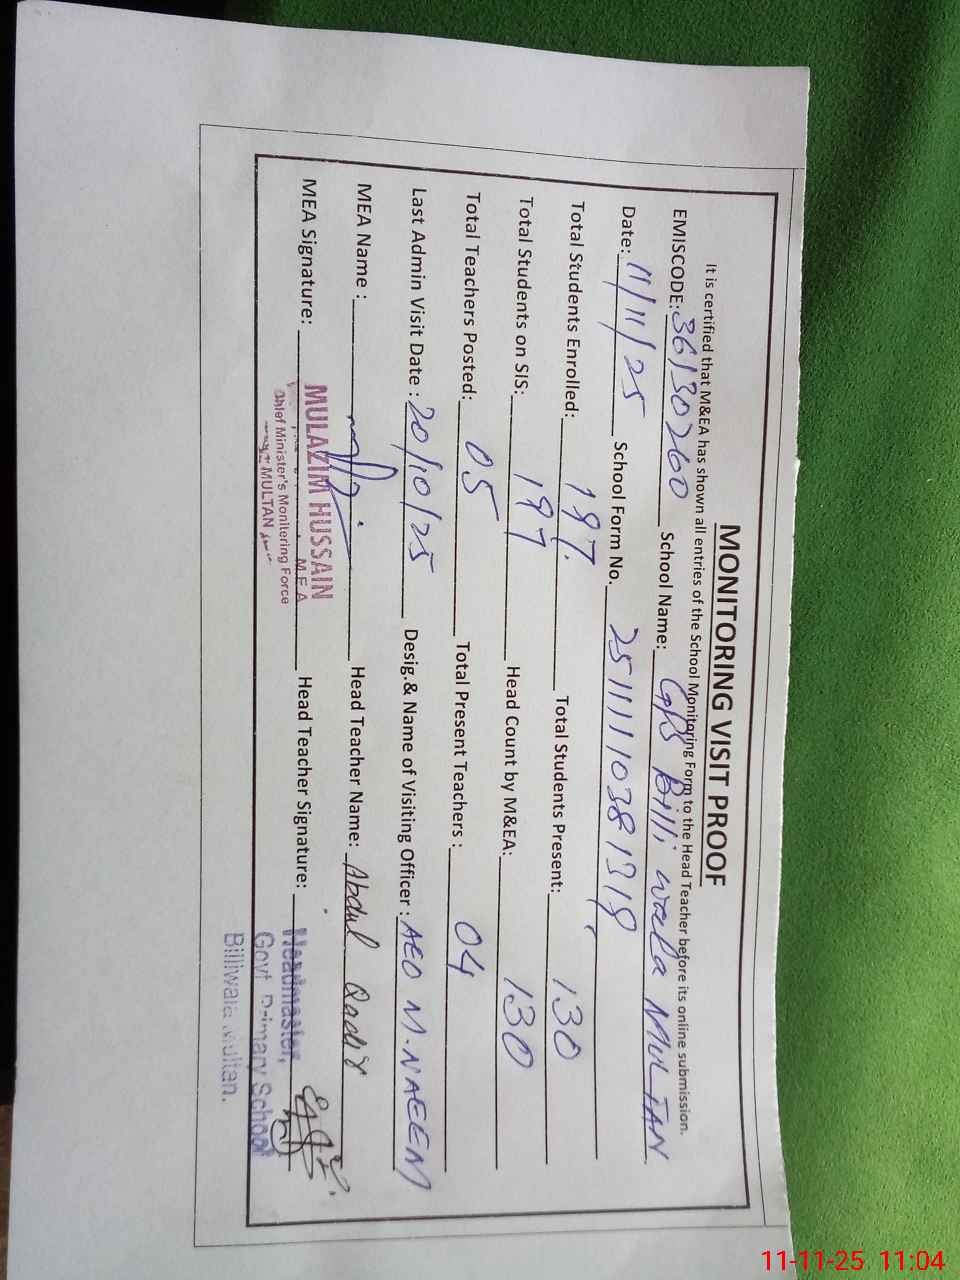 MONITORING VISIT PROOF
It is certified that M&EA has shown all entries of the School Monitoring Form to the Head Teacher before its online submission.
EMISCODE: 36130260 School Name: GPS Billi wala MULTAN
Date: 11/11/25 School Form No. 25111110381319
Total Students Enrolled: 197. Total Students Present: 130
Total Students on SIS: 197 Head Count by M&EA: 130
Total Teachers Posted: 05 Total Present Teachers : 04
Last Admin Visit Date : 20/10/25 Desig.& Name of Visiting Officer : AEO M.NAEEM
MEA Name : Head Teacher Name: Abdul Qadir
MEA Signature: Head Teacher Signature:
MULAZIM HUSSAIN
M E A
Chief Minister's Monitering Force
MULTAN
Headmaster,
Govt Primary School
Billiwala Multan.
11-11-25 11:04